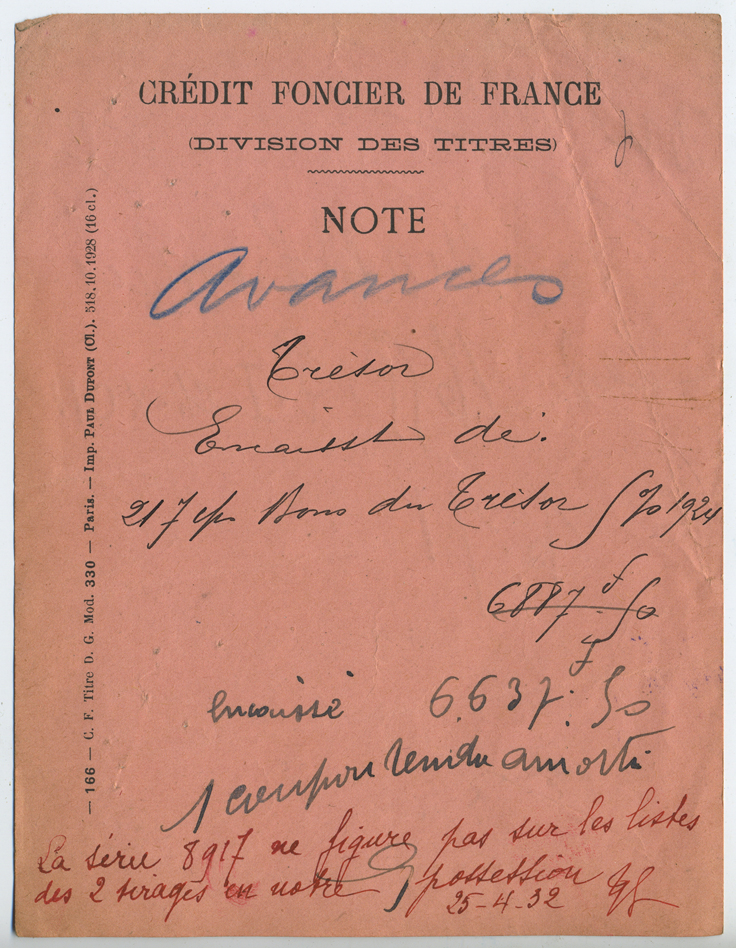 CRÉDIT FONCIER DE FRANCE
(DIVISION DES TITRES)
NOTE
Avances
Trésor
Encaisst de:
217 cps Bons du Trésor 1924
6887f 50
encaissé 6.637f. 50
1 coupon rendu amorti
La série 8917 ne figure pas sur les listes
des 2 tirages en notre possession
25-4-32
— 166 — C. F. Titre D. G. Mod. 330 — Paris. — Imp. PAUL DUPONT (Cl.). 518.10.1928 (16 cl.)